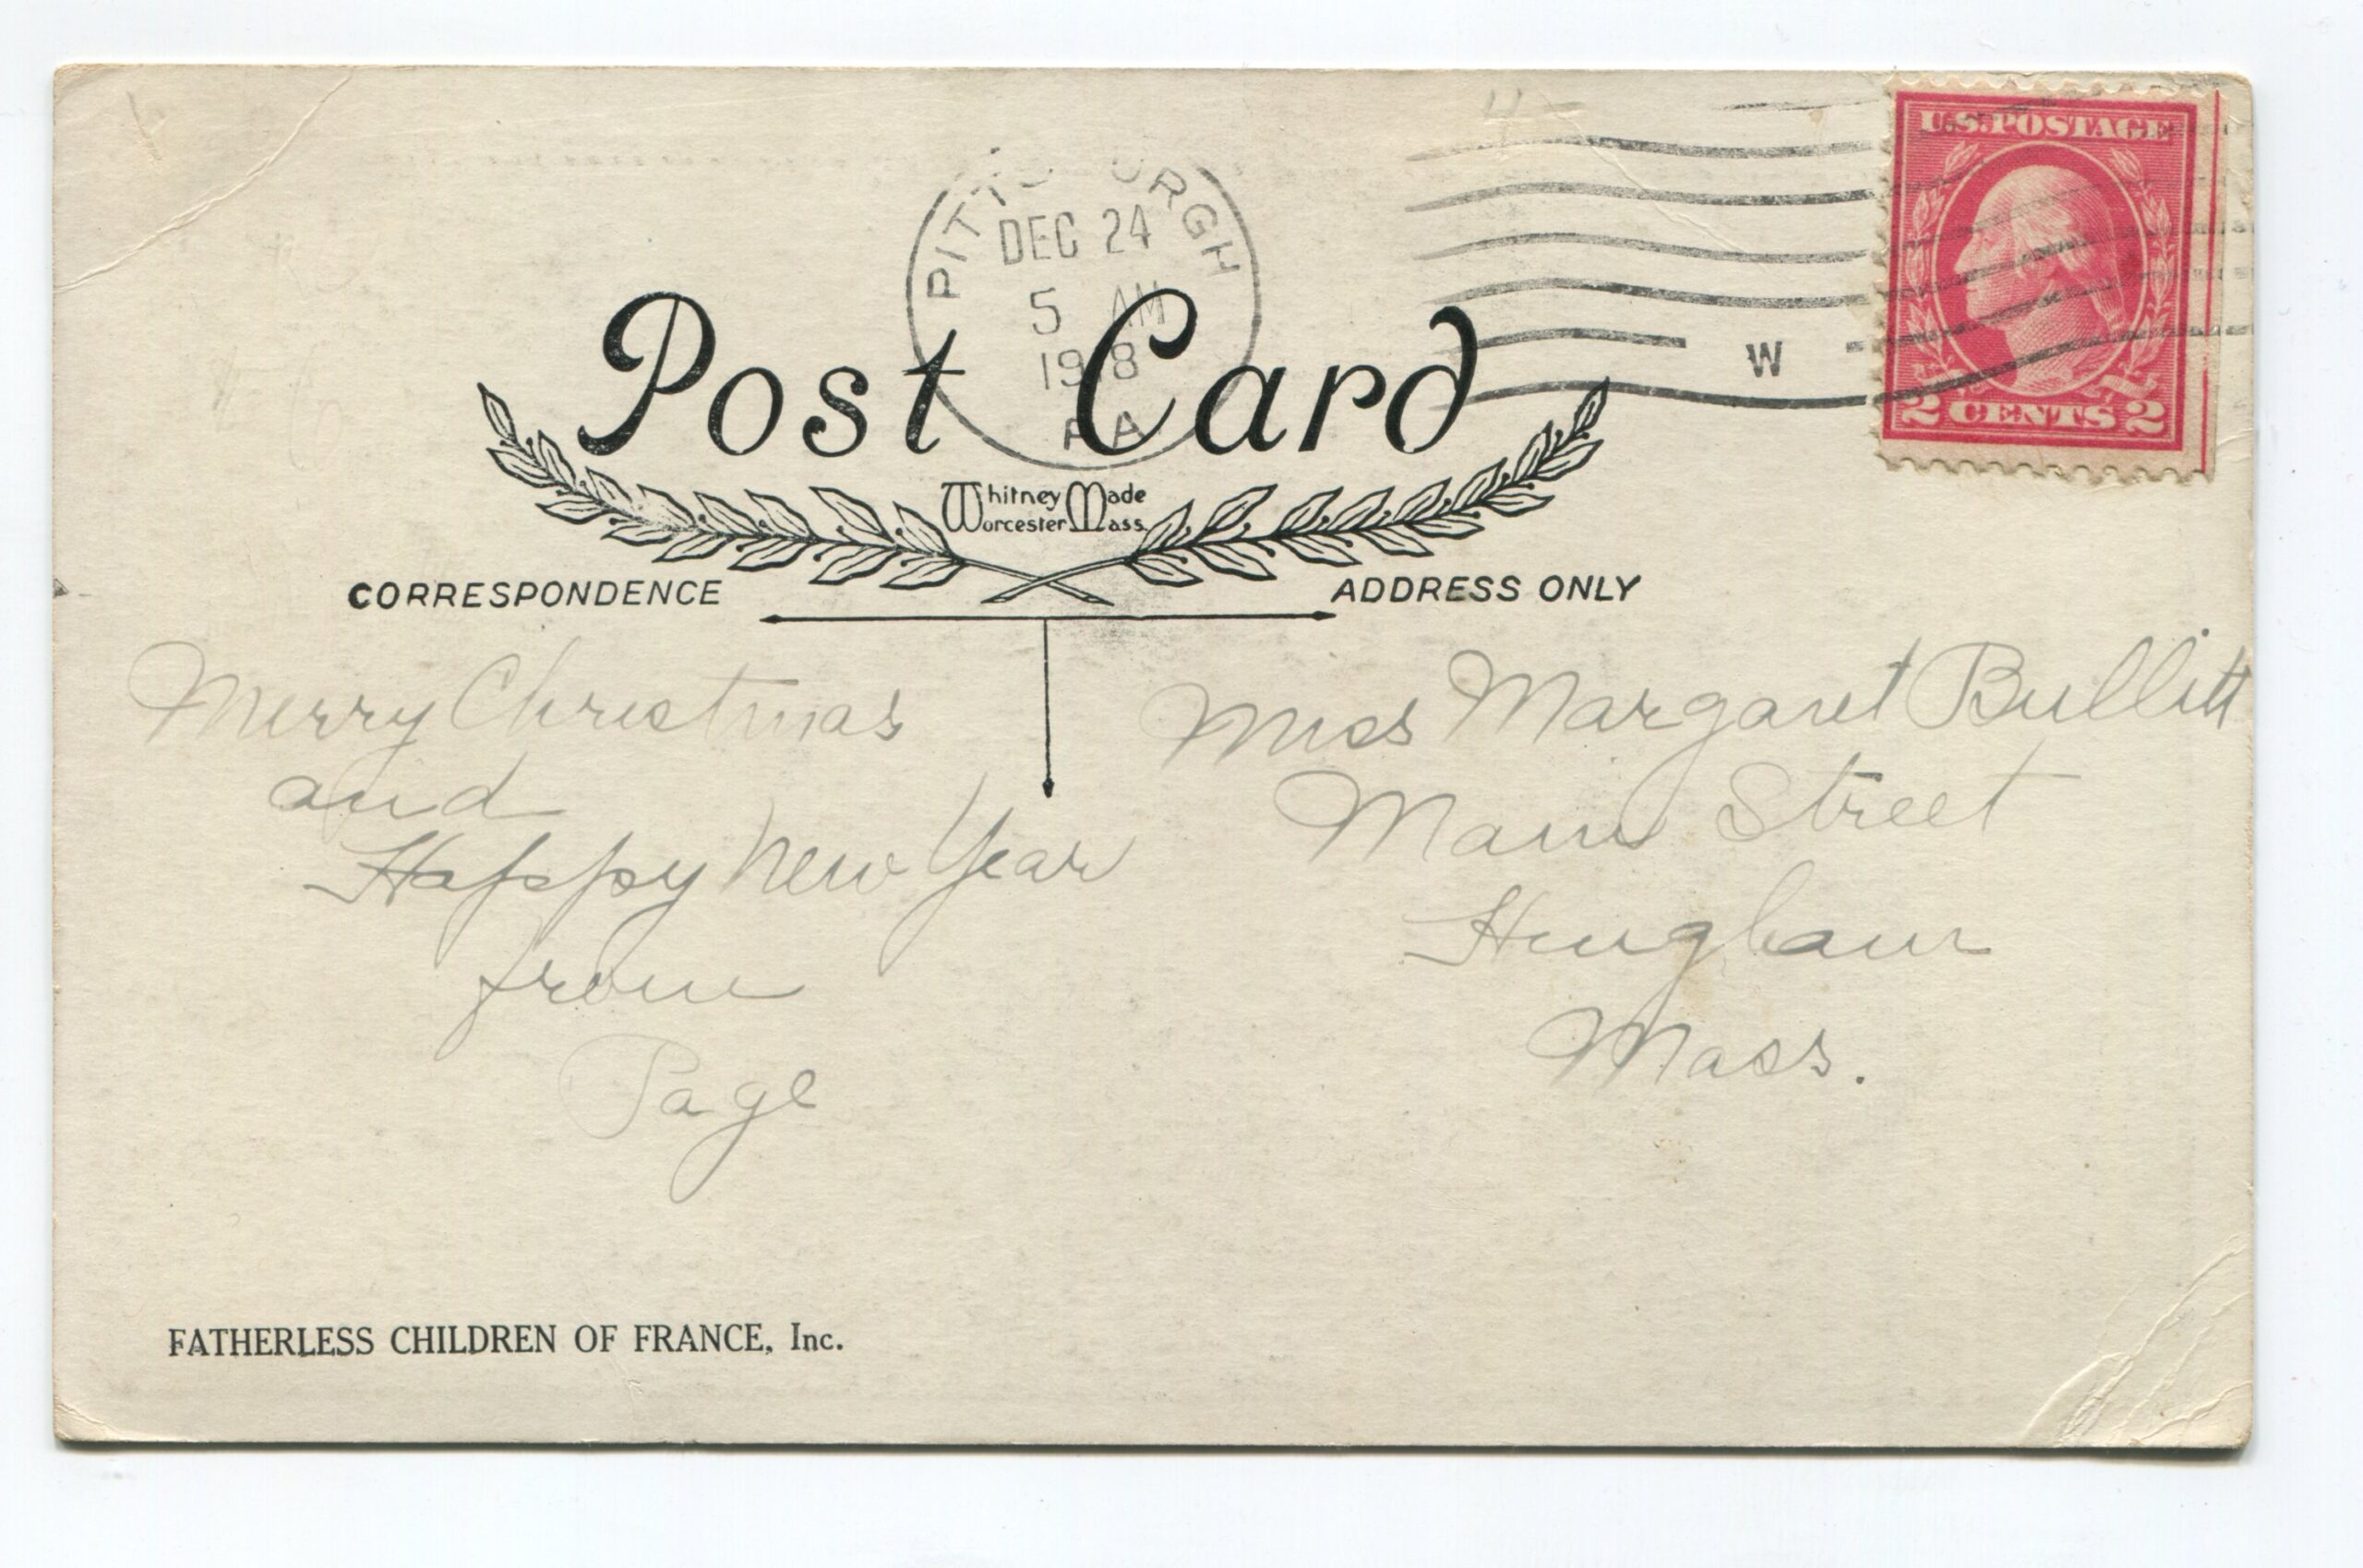 PITTSBURGH
DEC 24
5 AM
1918
PA
W
U.S.POSTAGE
2 CENTS 2
Post Card
Whitney Made
Worcester Mass
CORRESPONDENCE
ADDRESS ONLY
Merry Christmas
and
Happy New Year
from
Page
Miss Margaret Bullitt
Main Street
Hingham
Mass.
FATHERLESS CHILDREN OF FRANCE, Inc.